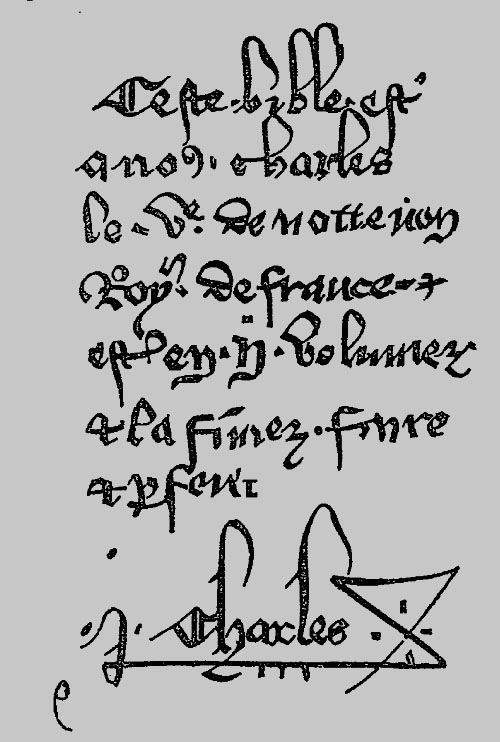 Ceste bible est
a nous charles
le Ve de notre non
Roy de france et
est en ii volumes
et la fimez furre
et pfent
Charles